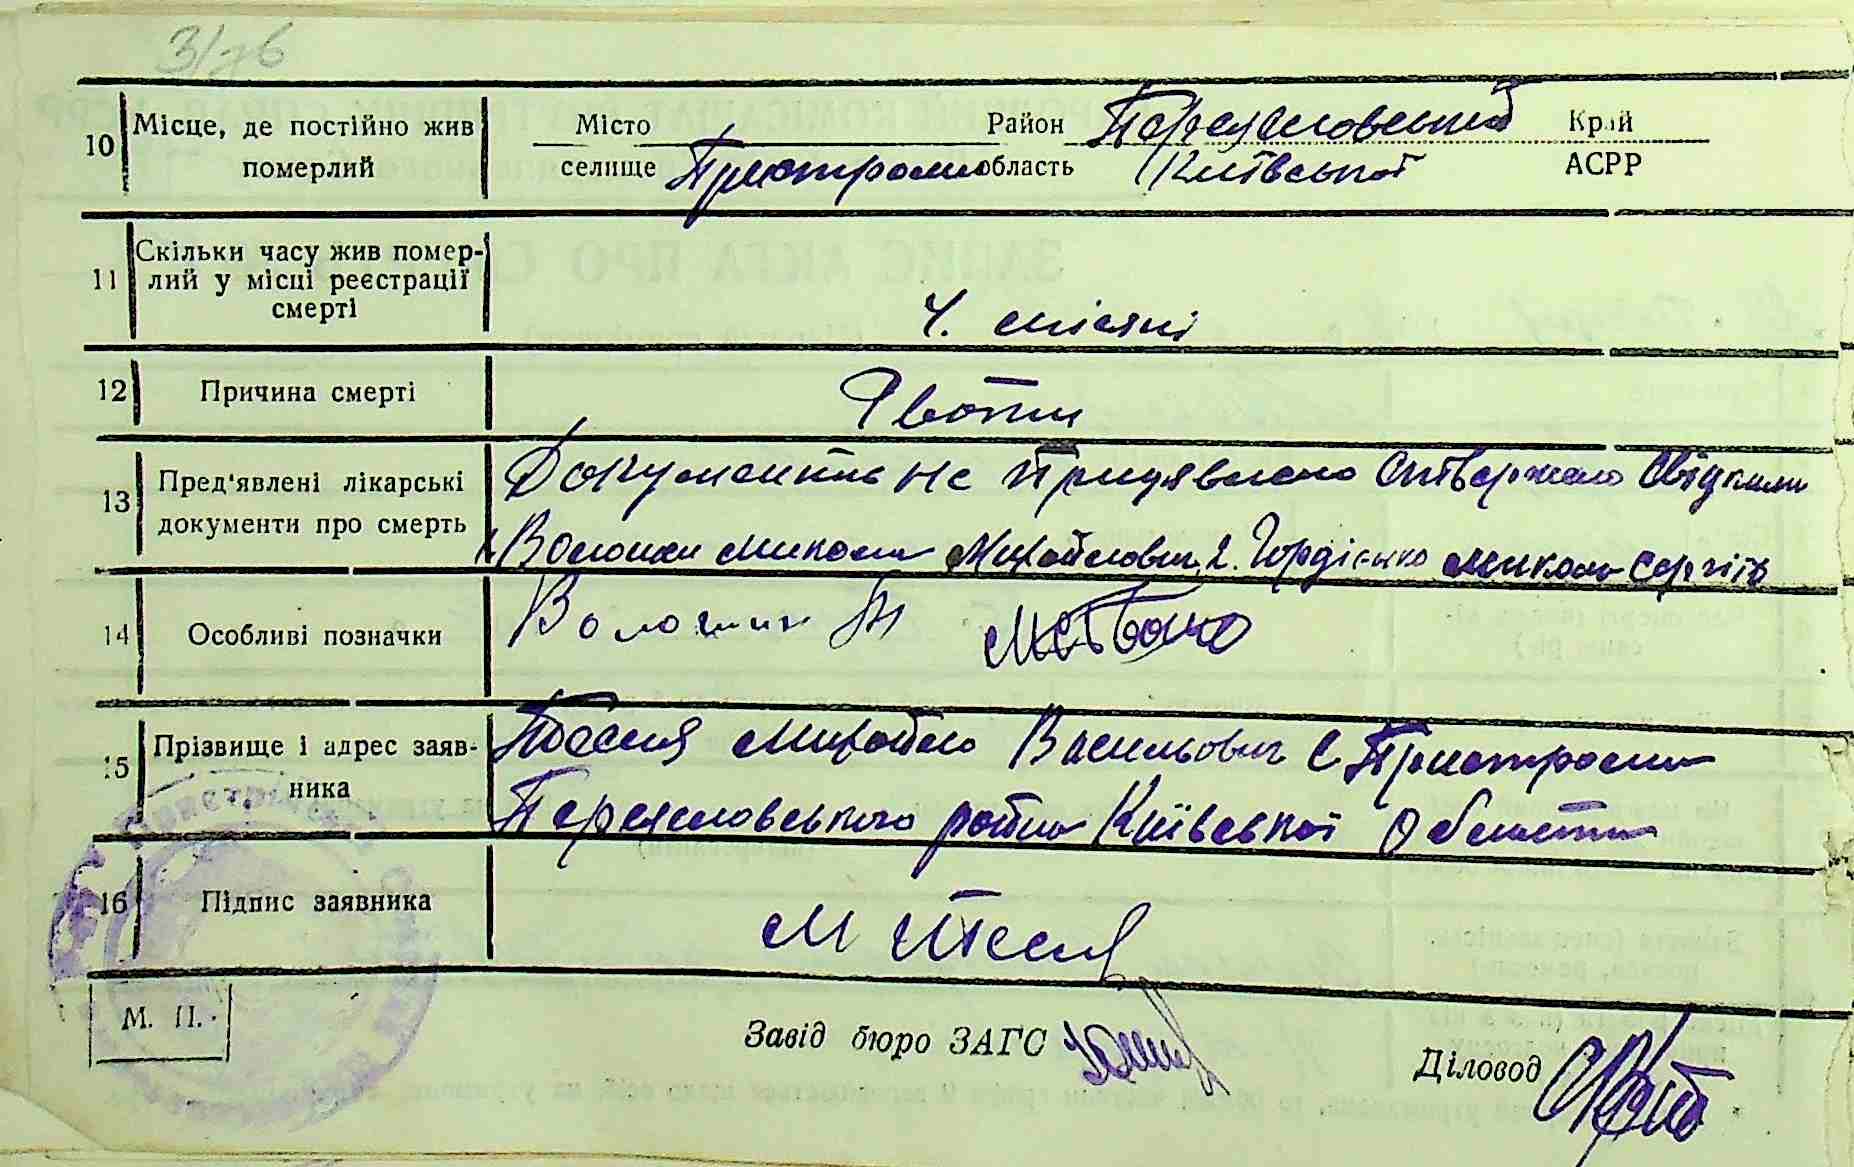 10 Місце, де постійно жив померлий
Місто Район Переяславський Край
селище Пристроми область Київської АСРР
11 Скільки часу жив помер-
лий у місці реєстрації
смерті
4. місяці
12 Причина смерті
13 Пред'явлені лікарські
документи про смерть
Документів не придявлено Ствержено свідками
Волошин Микола Михайлович, 2. Гордієнко Микола Сергіїв
14 Особливі позначки
Волошин
15 Прізвище і адрес заяв-
ника
Михайло Васильович С. Пристроми
Переясловського району Київської Області
16 Підпис заявника
М
М. П.
Завід бюро ЗАГС
Діловод